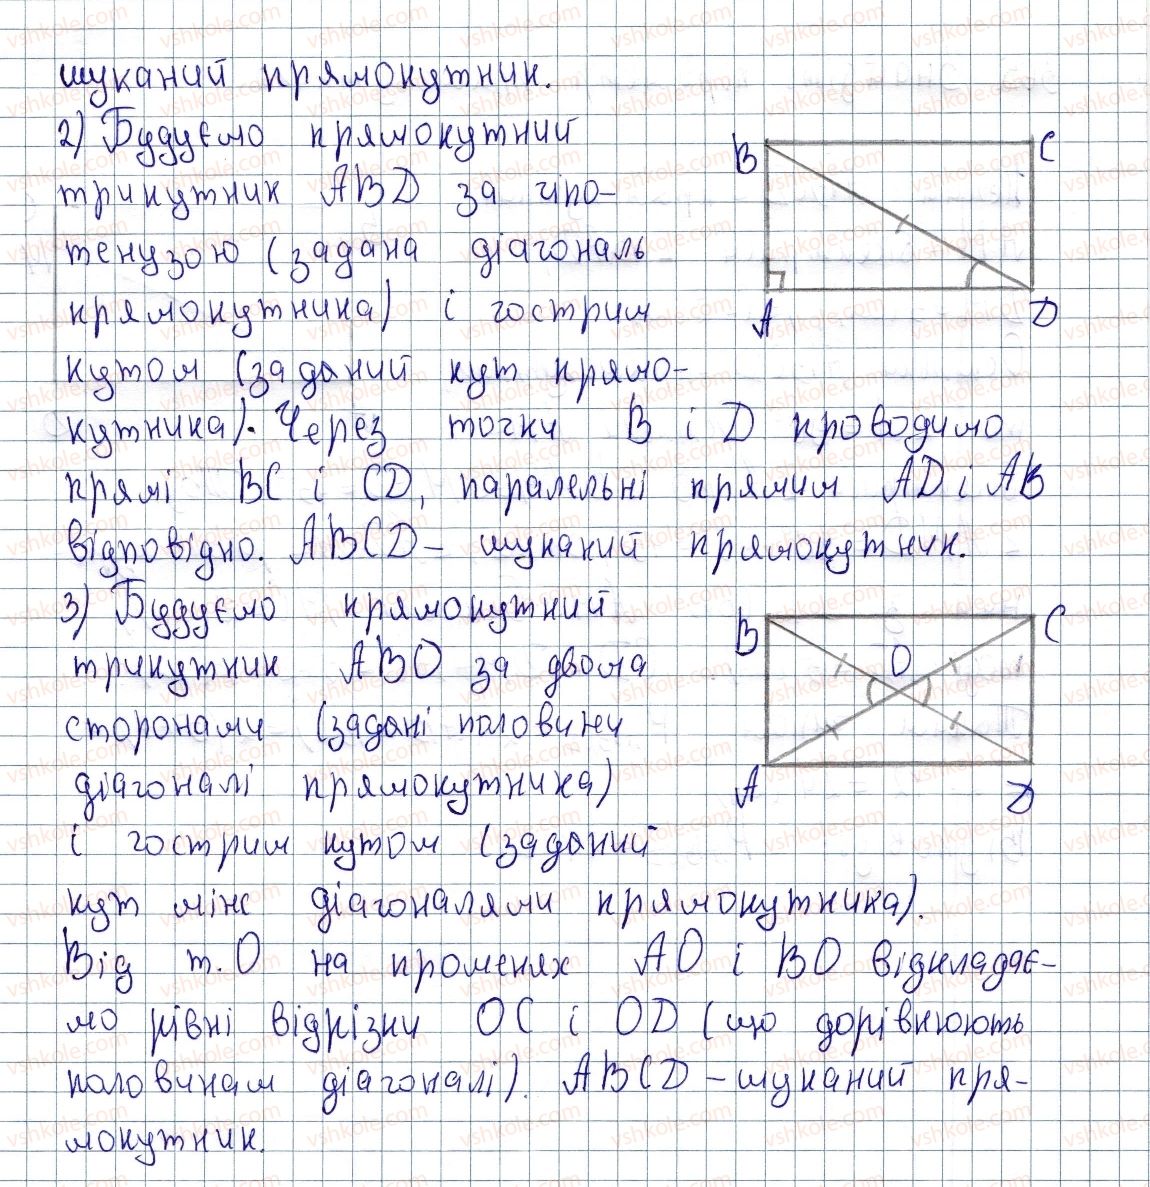 шуканий прямокутник.
2) Будуємо прямокутний
трикутник ABD за гіпо-
тенузою (задана діагональ
прямокутника) і гострим
кутом (заданий кут прямо-
кутника). Через точки B і D проводимо
прямі BC і CD, паралельні прямим AD і AB
відповідно. ABCD – шуканий прямокутник.
B
C
A
D
3) Будуємо прямокутний
трикутник ABO за двома
сторонами (задані половини
діагоналі прямокутника)
і гострим кутом (заданий
кут між діагоналями прямокутника).
Від т. O на променях AO і BO відкладає-
мо рівні відрізки OC і OD (що дорівнюють
половинам діагоналі). ABCD – шуканий пря-
мокутник.
B
C
O
A
D
vshkole.com